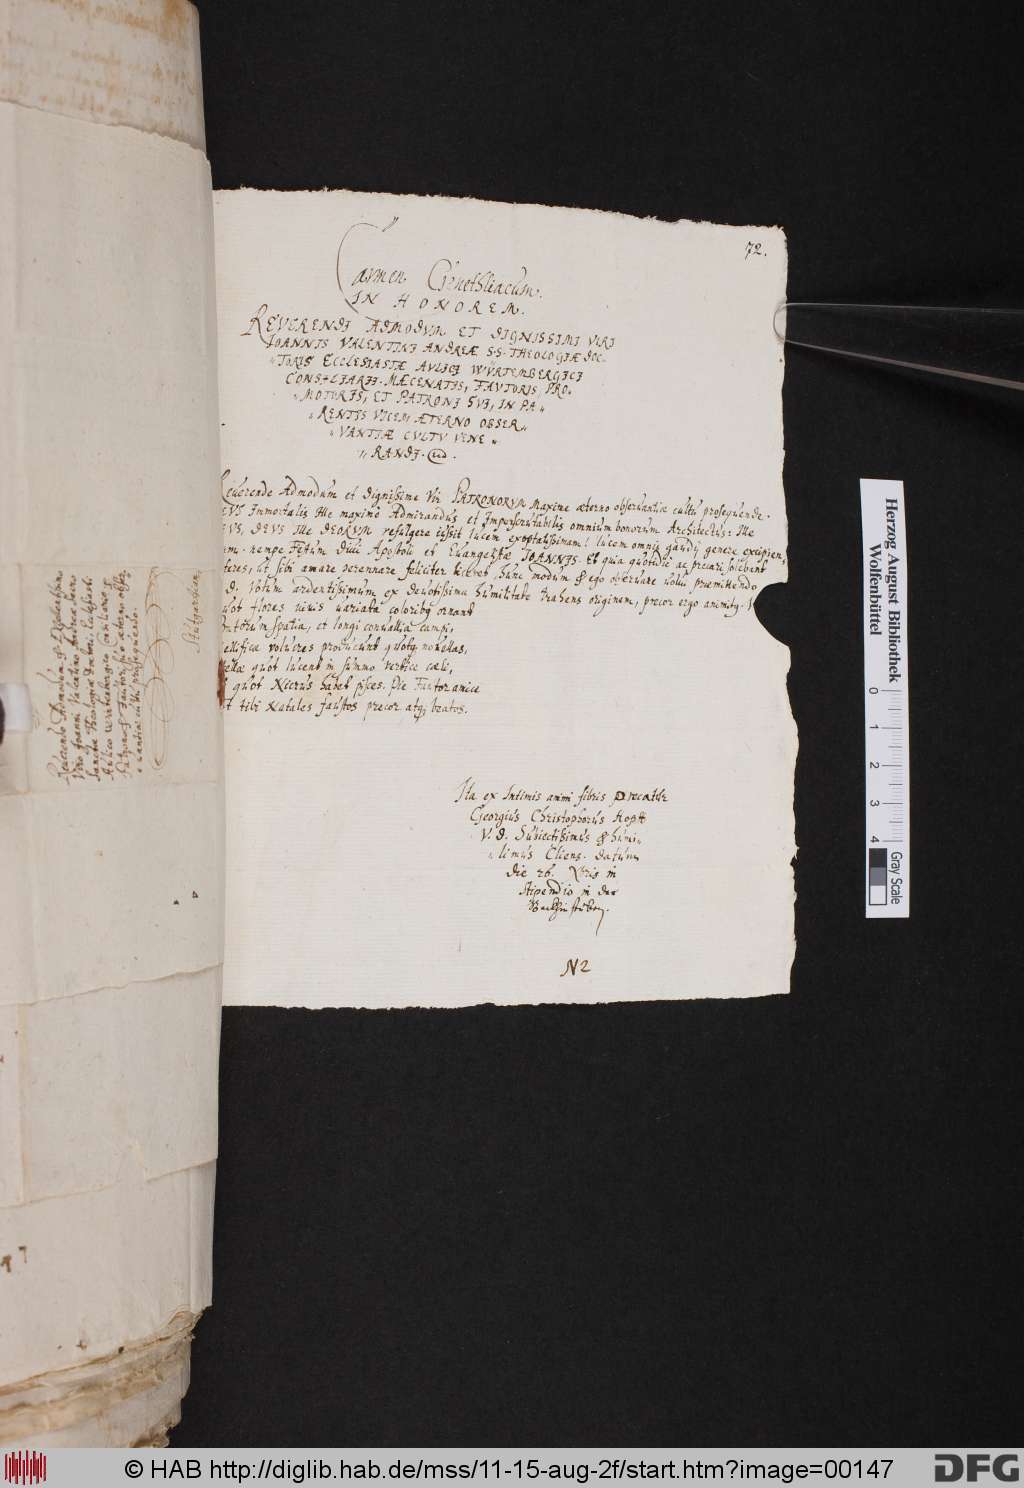 72.
Carmen Genethliacum.
IN HONOREM.
REVERENDJ ADMODVM ET DIGNISSIMI VIRI
JOANNIS VALENTINI ANDREÆ S.S. THEOLOGIÆ DOC-
TORIS ECCLESIASTÆ AVLICJ WÜRTEMBERGICJ
CONSILIARIJ. MÆCENATIS, FAVTORIS, PRO-
MOTORIS, ET PATRONJ SVJ, IN PA-
RENTIS VICEM ÆTERNO OBSER-
VANTIÆ CVLTV VENE-
RANDJ.
Reverende Admodum et dignissime Vir PATRONORVM maxime æterno observantiæ cultu prosequende.
EVS Immortalis Ille maximè Admirandus et Imperscrutabilis omnium bonorum Architectus: Ille
EVS, DEVS Ille DEORVM refulgere iussit lucem exoptatissimam! lucem omnis gaudij genere excipien-
nempe Festum Divi Apostoli et Evangelistæ JOANNIS. Et quia quotidie ac precari solebant
teres, ut sibi amare perennare feliciter liceret, hunc modum & ego observare volui præmittendo
D. Votum ardentissimum ex devotissima humilitate trahens originem, precor ergo animitus.
uot flores vivis variata coloribus ornant
torum spatia, et longi convallia campi,
ellificæ volucres producunt quotque novellas,
ellæ quot lucent in summo vertice cæli,
quot Necrus habet pisces. Pie Fautor amice
ot tibi Natales faustos precor atque beatos.
Ita ex Intimis animi fibris precatur
Georgius Christophorus Hopff
V. D. Subiectissimus & humi-
limus Cliens. datum
die 26. Xbris in
stipendio in der
N2
Reverendo Admodum &
Viro Joanni Valentino Andreæ
Sanctæ Theologiæ Doctori,
Aulico Wirtembergico Consiliario &
Patrono & Fautori suo æterno obser-
vantiæ cultu prosequendo.
Stutgardiam
Herzog August Bibliothek
Wolfenbüttel
0 1 2 3 4
Gray Scale
© HAB http://diglib.hab.de/mss/11-15-aug-2f/start.htm?image=00147
DFG